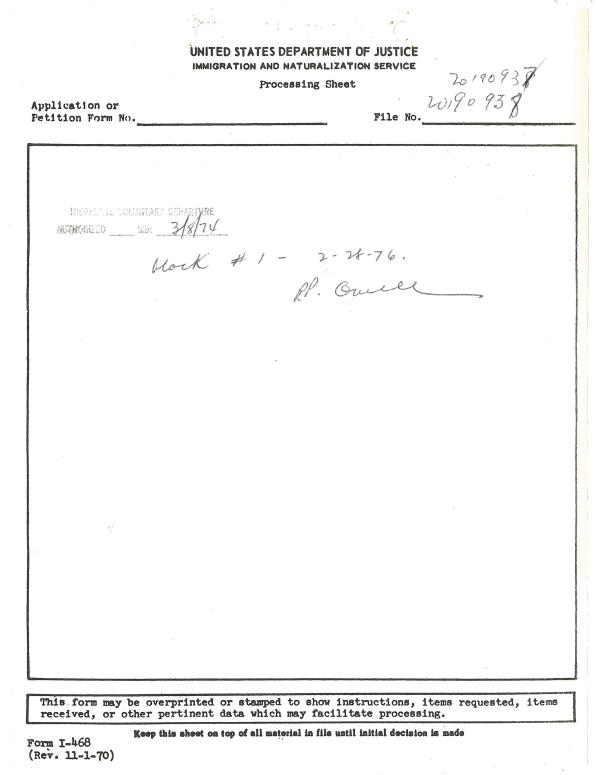 UNITED STATES DEPARTMENT OF JUSTICE
IMMIGRATION AND NATURALIZATION SERVICE
Processing Sheet
20190937
20190938
Application or
Petition Form No.
File No.
VOLUNTARY DEPARTURE
AUTHORIZED 3/8/74
block #1 - 2-28-76.
This form may be overprinted or stamped to show instructions, items requested, items
received, or other pertinent data which may facilitate processing.
Keep this sheet on top of all material in file until initial decision is made
Form I-468
(Rev. 11-1-70)